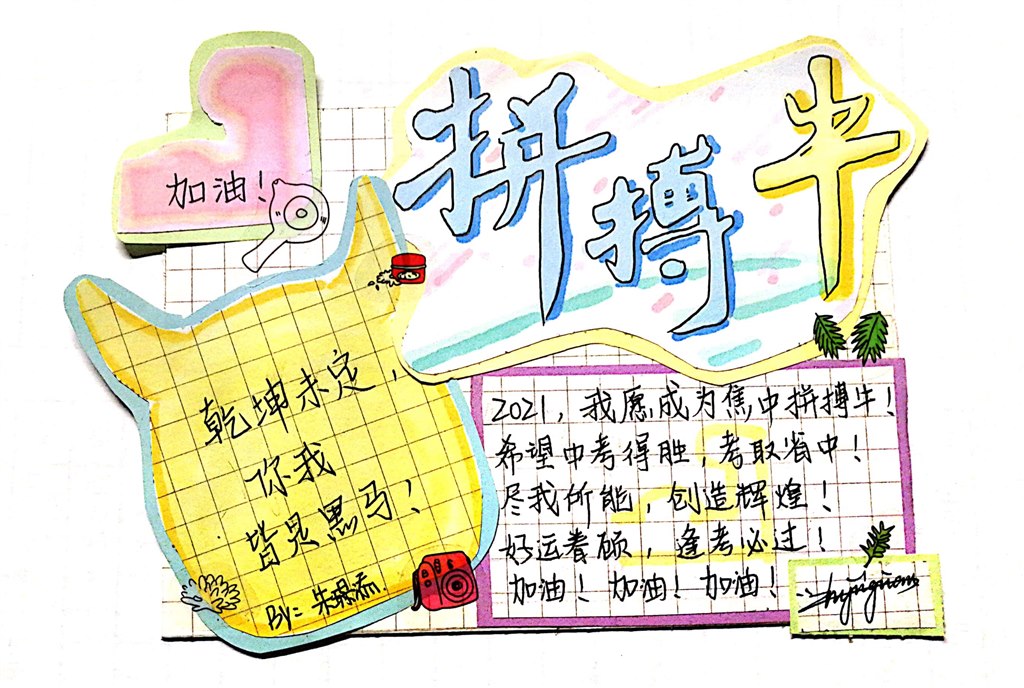 加油！
拼搏牛
乾坤未定，
你我
皆是黑马！
2021，我愿成为焦中拼搏牛！
希望中考得胜，考取省中！
尽我所能，创造辉煌！
好运眷顾，逢考必过！
加油！加油！加油！